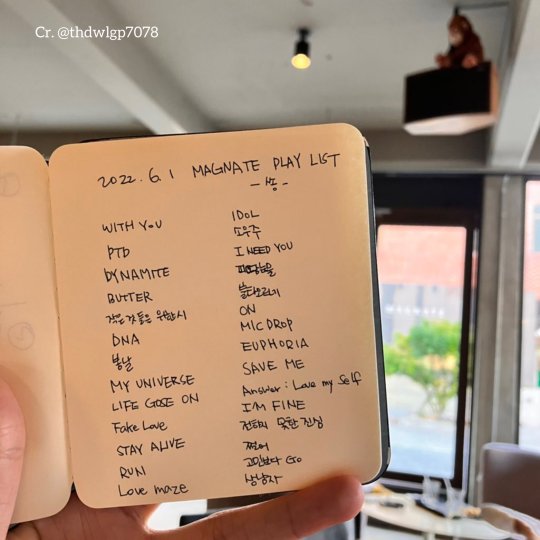 Cr. @thdwlgp7078
2022. 6. 1 MAGNATE PLAY LIST
WITH YOU
PTD
DYNAMITE
BUTTER
작은 것들을 위한 시
DNA
봄날
MY UNIVERSE
LIFE GOSE ON
Fake Love
STAY ALIVE
RUN
Love maze
IDOL
소우주
I NEED YOU
피땀눈물
불타오르기
ON
MIC DROP
EUPHORIA
SAVE ME
Answer : Love my self
I'M FINE
전하지 못한 진심
쩔어
고민보다 Go
상남자